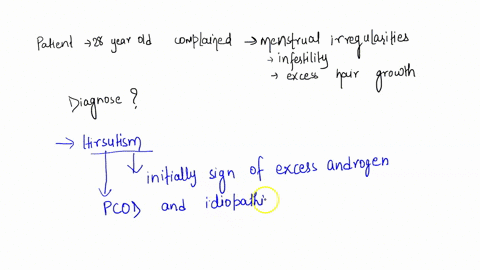 Patient → 28 year old complained → menstrual irregularities
→ infestility
→ excess hair growth
Diagnose ?
→ Hirsutism
initially sign of excess androgen
PCOD and idiopathi